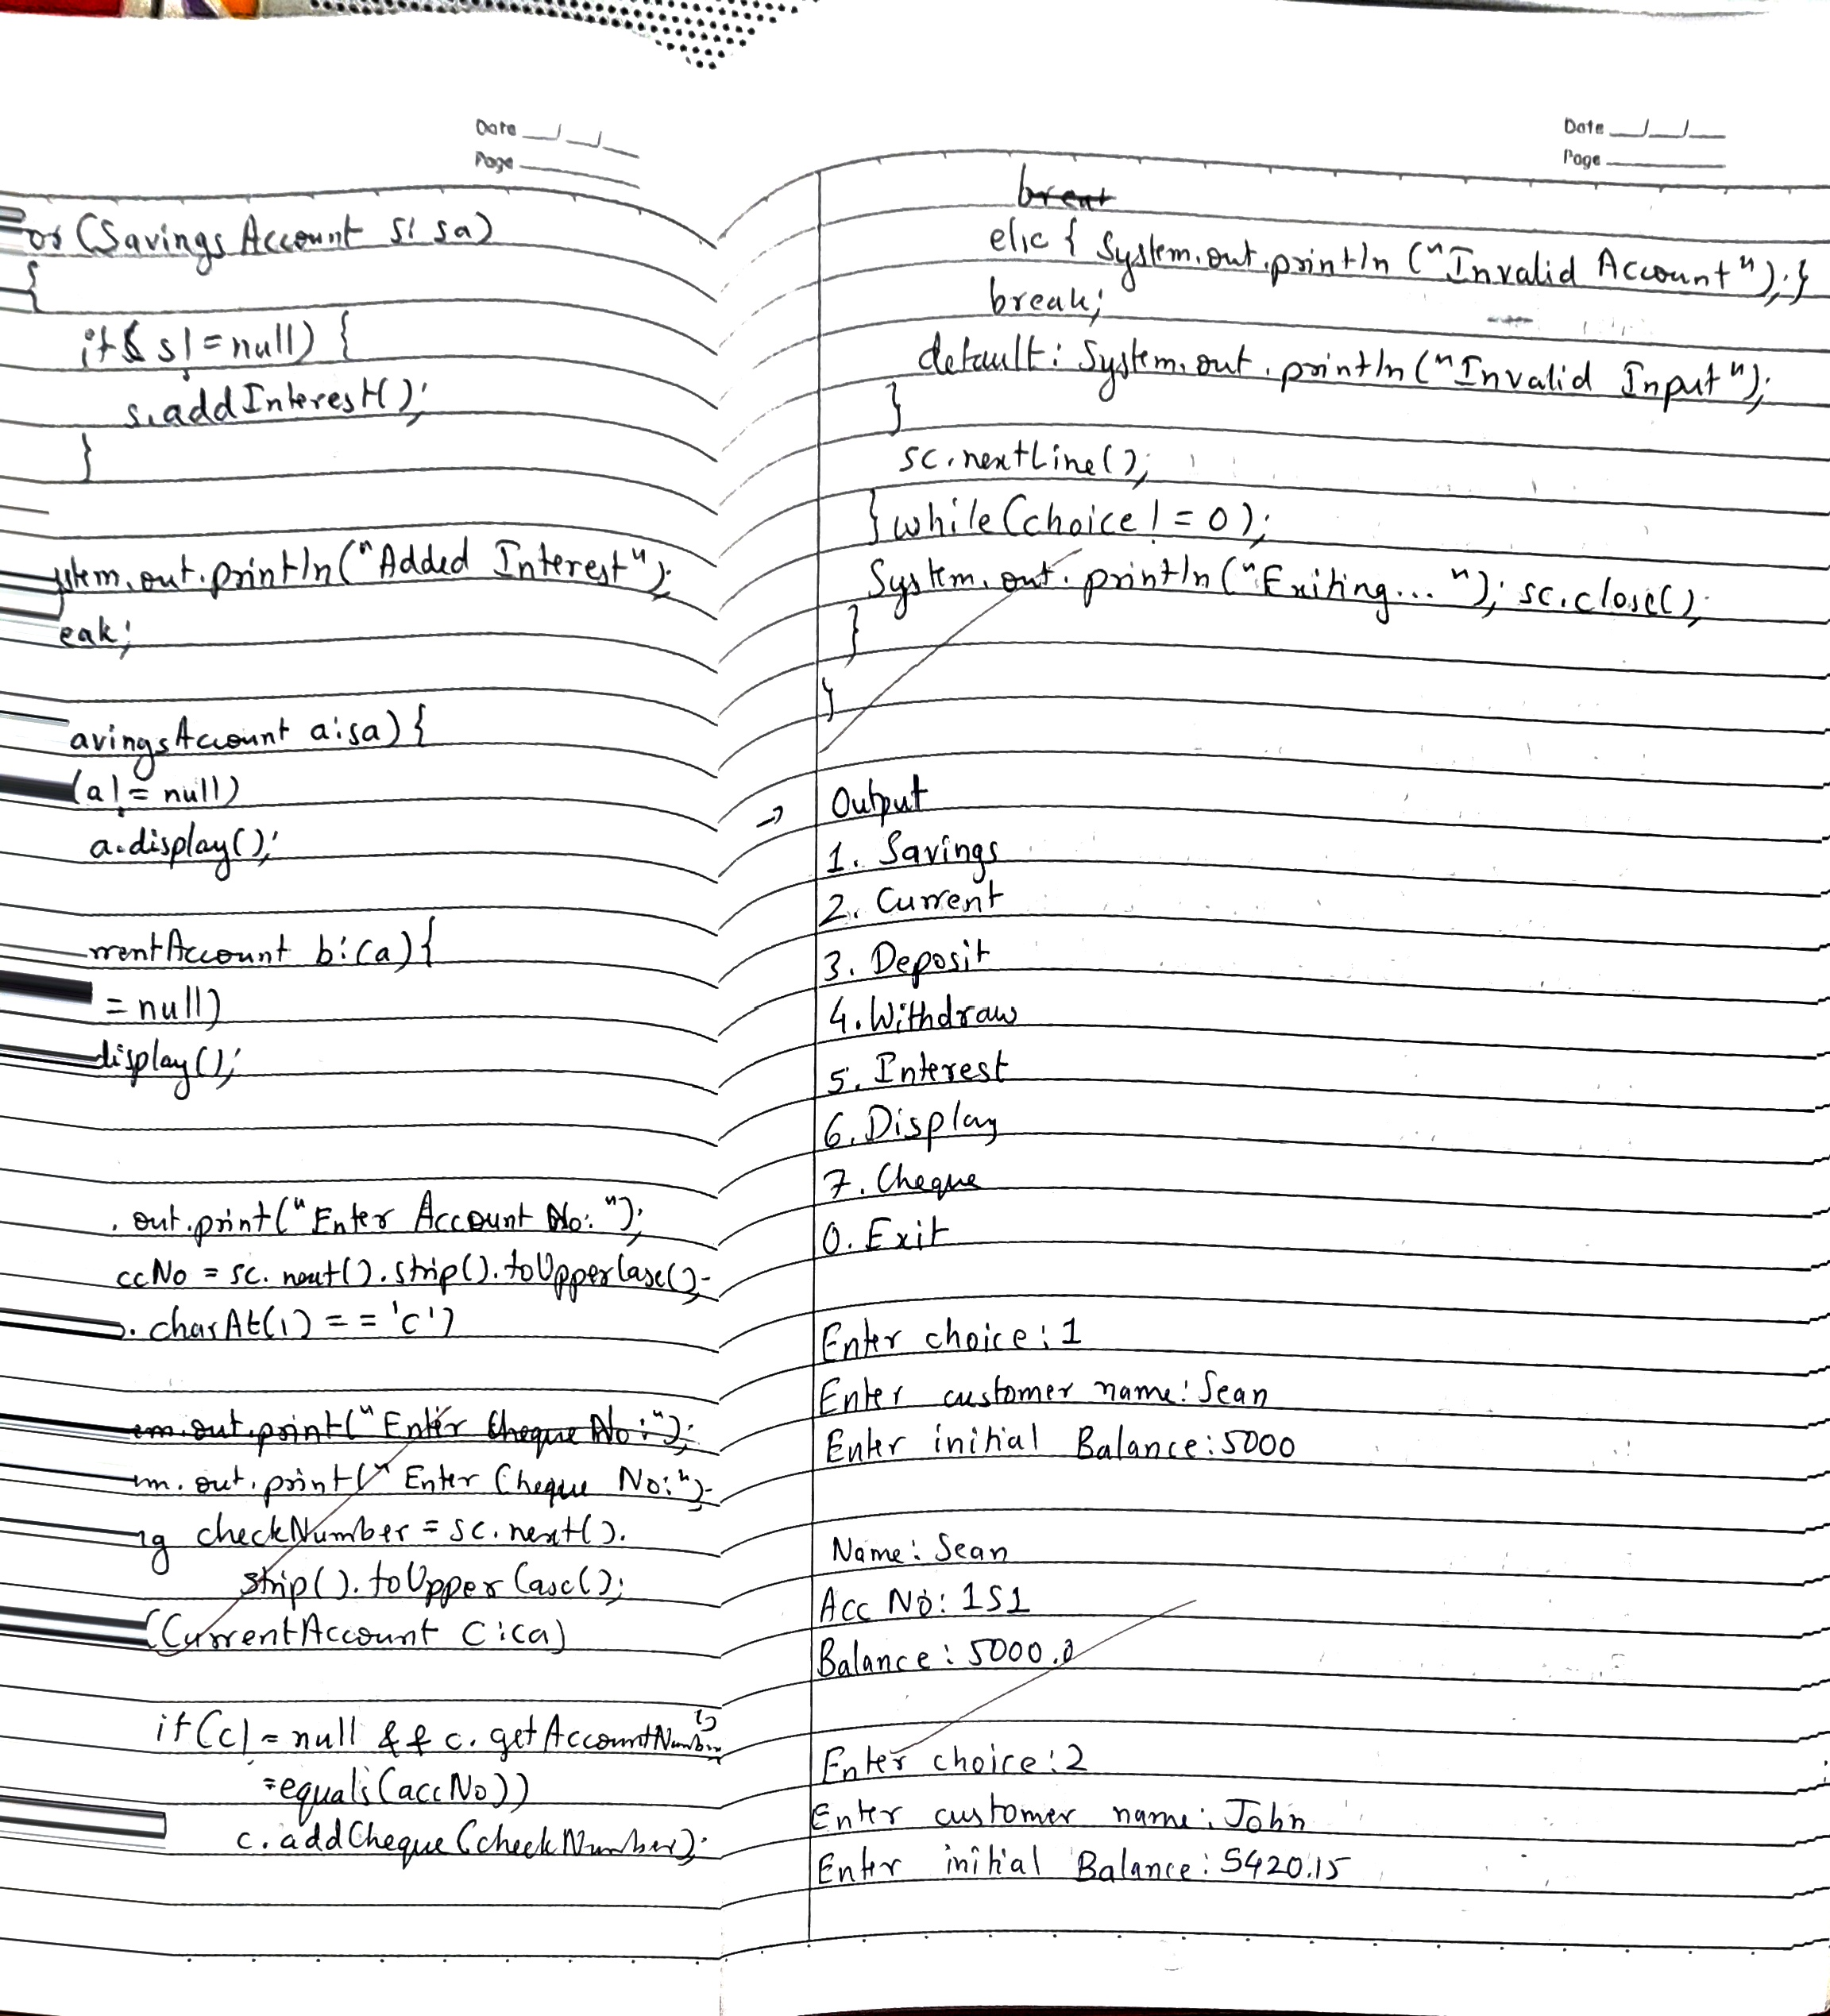 Date
Page
or (Savings Account s: sa)
{
if( s!=null) {
s.addInterest();
}
stem.out.println("Added Interest");
eak;
avingsAccount a:sa) {
(a!= null)
a.display();
rrentAccount b:ca){
= null)
display();
.out.print("Enter Account No: ");
ccNo = sc.next().strip().toUpperCase();
o.charAt(1) == 'C')
em.out.print("Enter Cheque No:");
em.out.print("Enter Cheque No:");
ng checkNumber = sc.next().
strip().toUpperCase();
(CurrentAccount c:ca)
if(c!= null && c.getAccountNumber()
=equals(accNo))
c.addCheque(checkNumber);
Date
Page
break
else { System.out.println ("Invalid Account"); }
break;
default: System.out.println("Invalid Input");
}
sc.nextLine();
} while(choice != 0);
System.out.println("Exiting... "); sc.close();
}
}
→ Output
1. Savings
2. Current
3. Deposit
4. Withdraw
5. Interest
6. Display
7. Cheque
0. Exit
Enter choice: 1
Enter customer name: Sean
Enter initial Balance: 5000
Name: Sean
Acc No: 1S1
Balance: 5000.0
Enter choice: 2
Enter customer name: John
Enter initial Balance: 5420.15